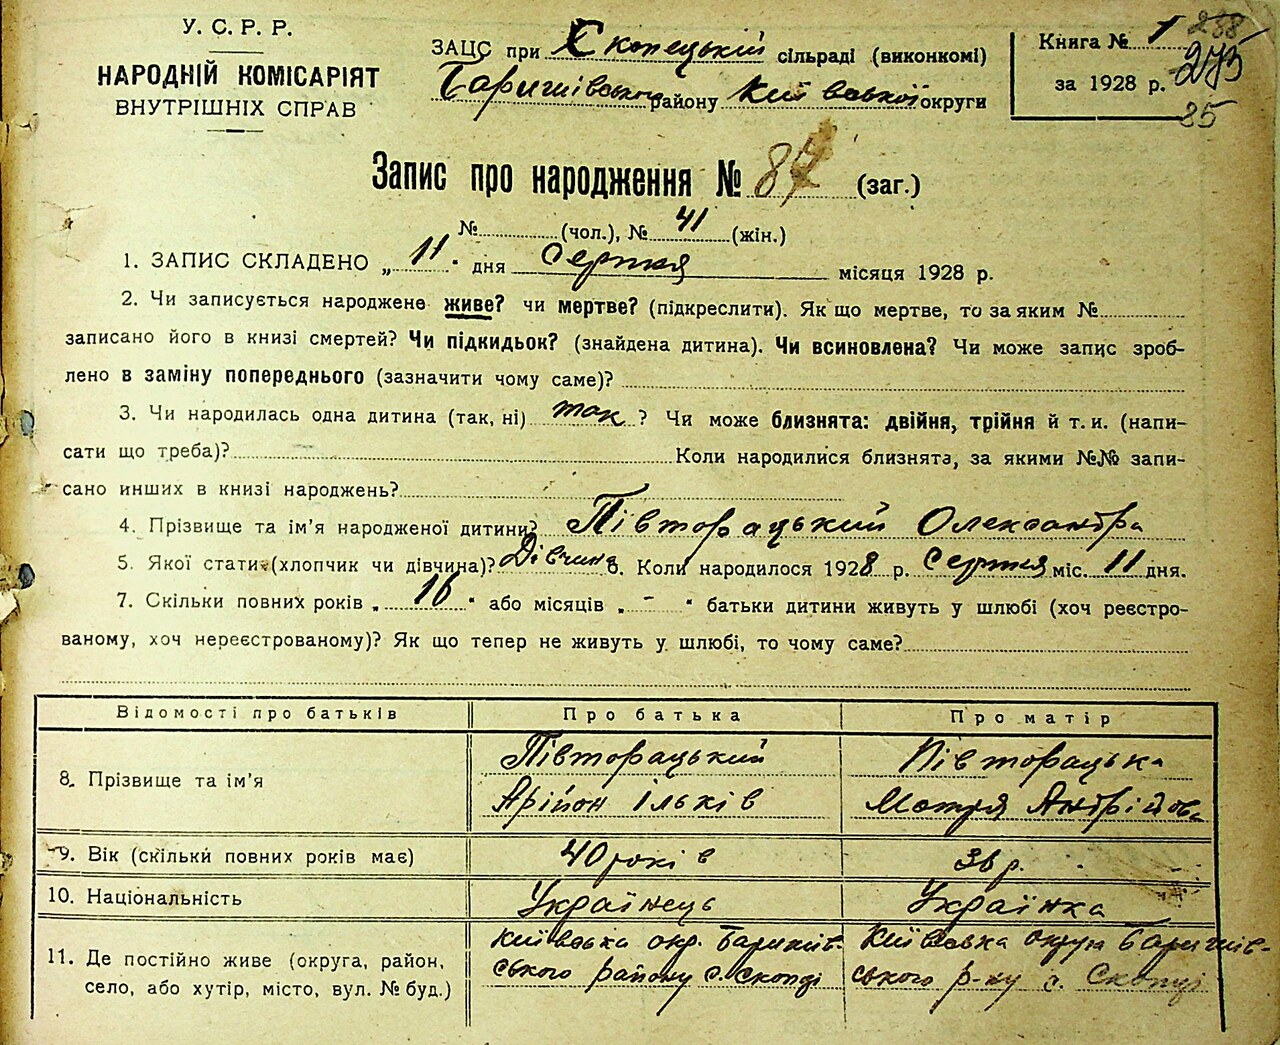 У. С. Р. Р.
НАРОДНІЙ КОМІСАРІЯТ
ВНУТРІШНІХ СПРАВ
ЗАЦС при Скопецькій сільраді (виконкомі)
Баришівського району Київської округи
Книга № 1
за 1928 р.
288
275
85
Запис про народження № 87 (заг.)
№ (чол.), № 41 (жін.)
1. ЗАПИС СКЛАДЕНО „ 11 " дня Серпня місяця 1928 р.
2. Чи записується народжене живе? чи мертве? (підкреслити). Як що мертве, то за яким №
записано його в книзі смертей? Чи підкидьок? (знайдена дитина). Чи всиновлена? Чи може запис зроб-
лено в заміну попереднього (зазначити чому саме)?
3. Чи народилась одна дитина (так, ні) так ? Чи може близнята: двійня, трійня й т. и. (напи-
сати що треба)? Коли народилися близнята, за якими №№ запи-
сано инших в книзі народжень?
4. Прізвище та ім'я народженої дитини? Півторацький Олександра
5. Якої стати (хлопчик чи дівчина)? Дівчина 6. Коли народилося 1928 р. Серпня міс. 11 дня.
7. Скільки повних років „ 16 " або місяців „ - " батьки дитини живуть у шлюбі (хоч реєстро-
ваному, хоч нереєстрованому)? Як що тепер не живуть у шлюбі, то чому саме?
Відомості про батьків Про батька Про матір
8. Прізвище та ім'я Півторацький Півторацька
Арійон Ільків Мотря Андрійовна
9. Вік (скільки повних років має) 40 років 36 р.
10. Національність Українець Українка
11. Де постійно живе (округа, район, Київська окр. Баришів- Київська округа Баришів-
село, або хутір, місто, вул. № буд.) ського району с. Скопці ського р-ну с. Скопці